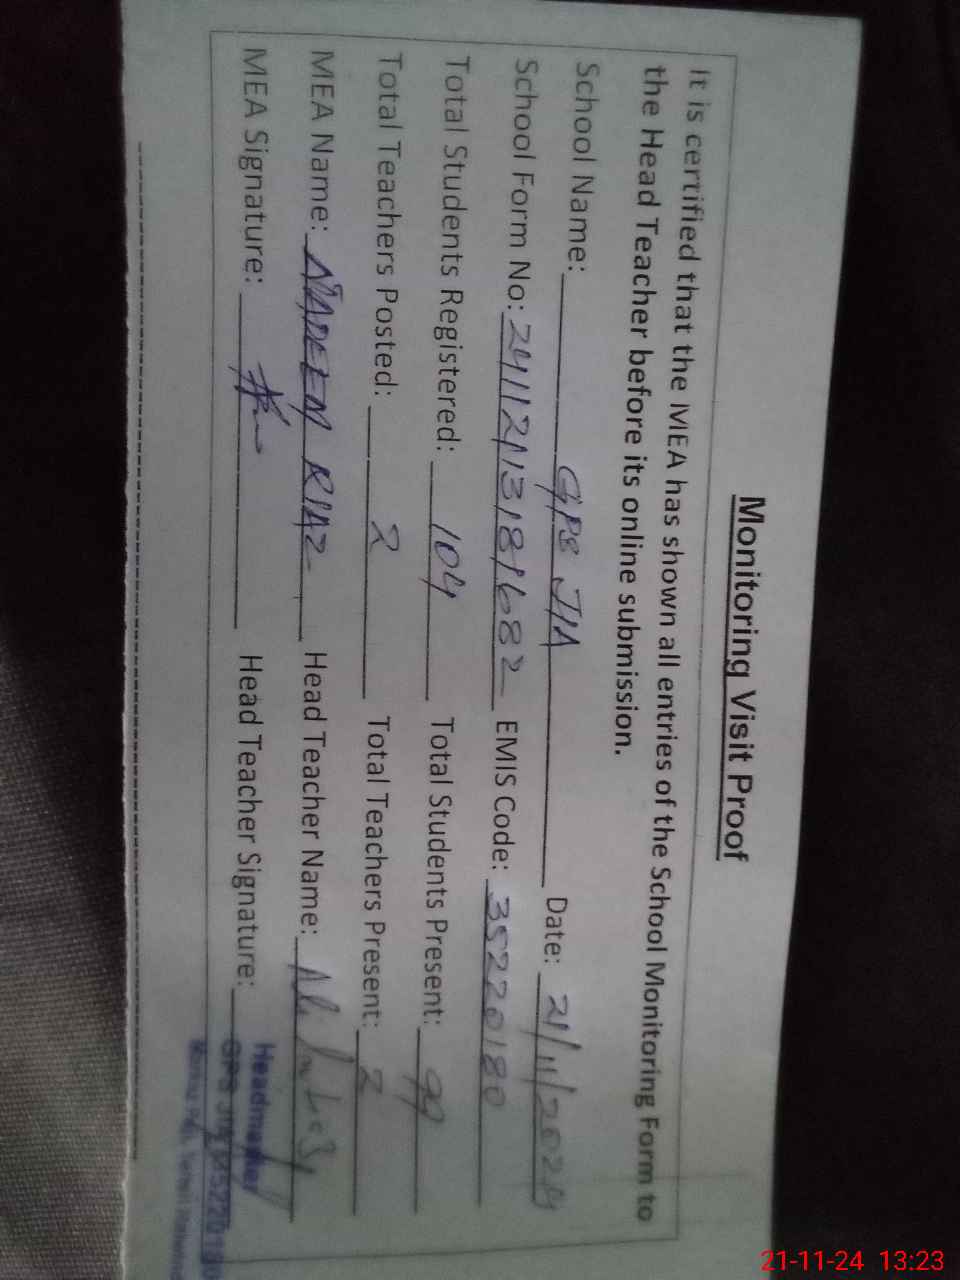 Monitoring Visit Proof
It is certified that the MEA has shown all entries of the School Monitoring Form to
the Head Teacher before its online submission.
School Name: GPS JIA Date: 21/11/2024
School Form No: 241121131181682 EMIS Code: 35220180
Total Students Registered: 104 Total Students Present: 99
Total Teachers Posted: 2 Total Teachers Present: 2
MEA Name: NADEEM RIAZ Head Teacher Name:
MEA Signature: Head Teacher Signature:
Headmaster
GPS
21-11-24 13:23